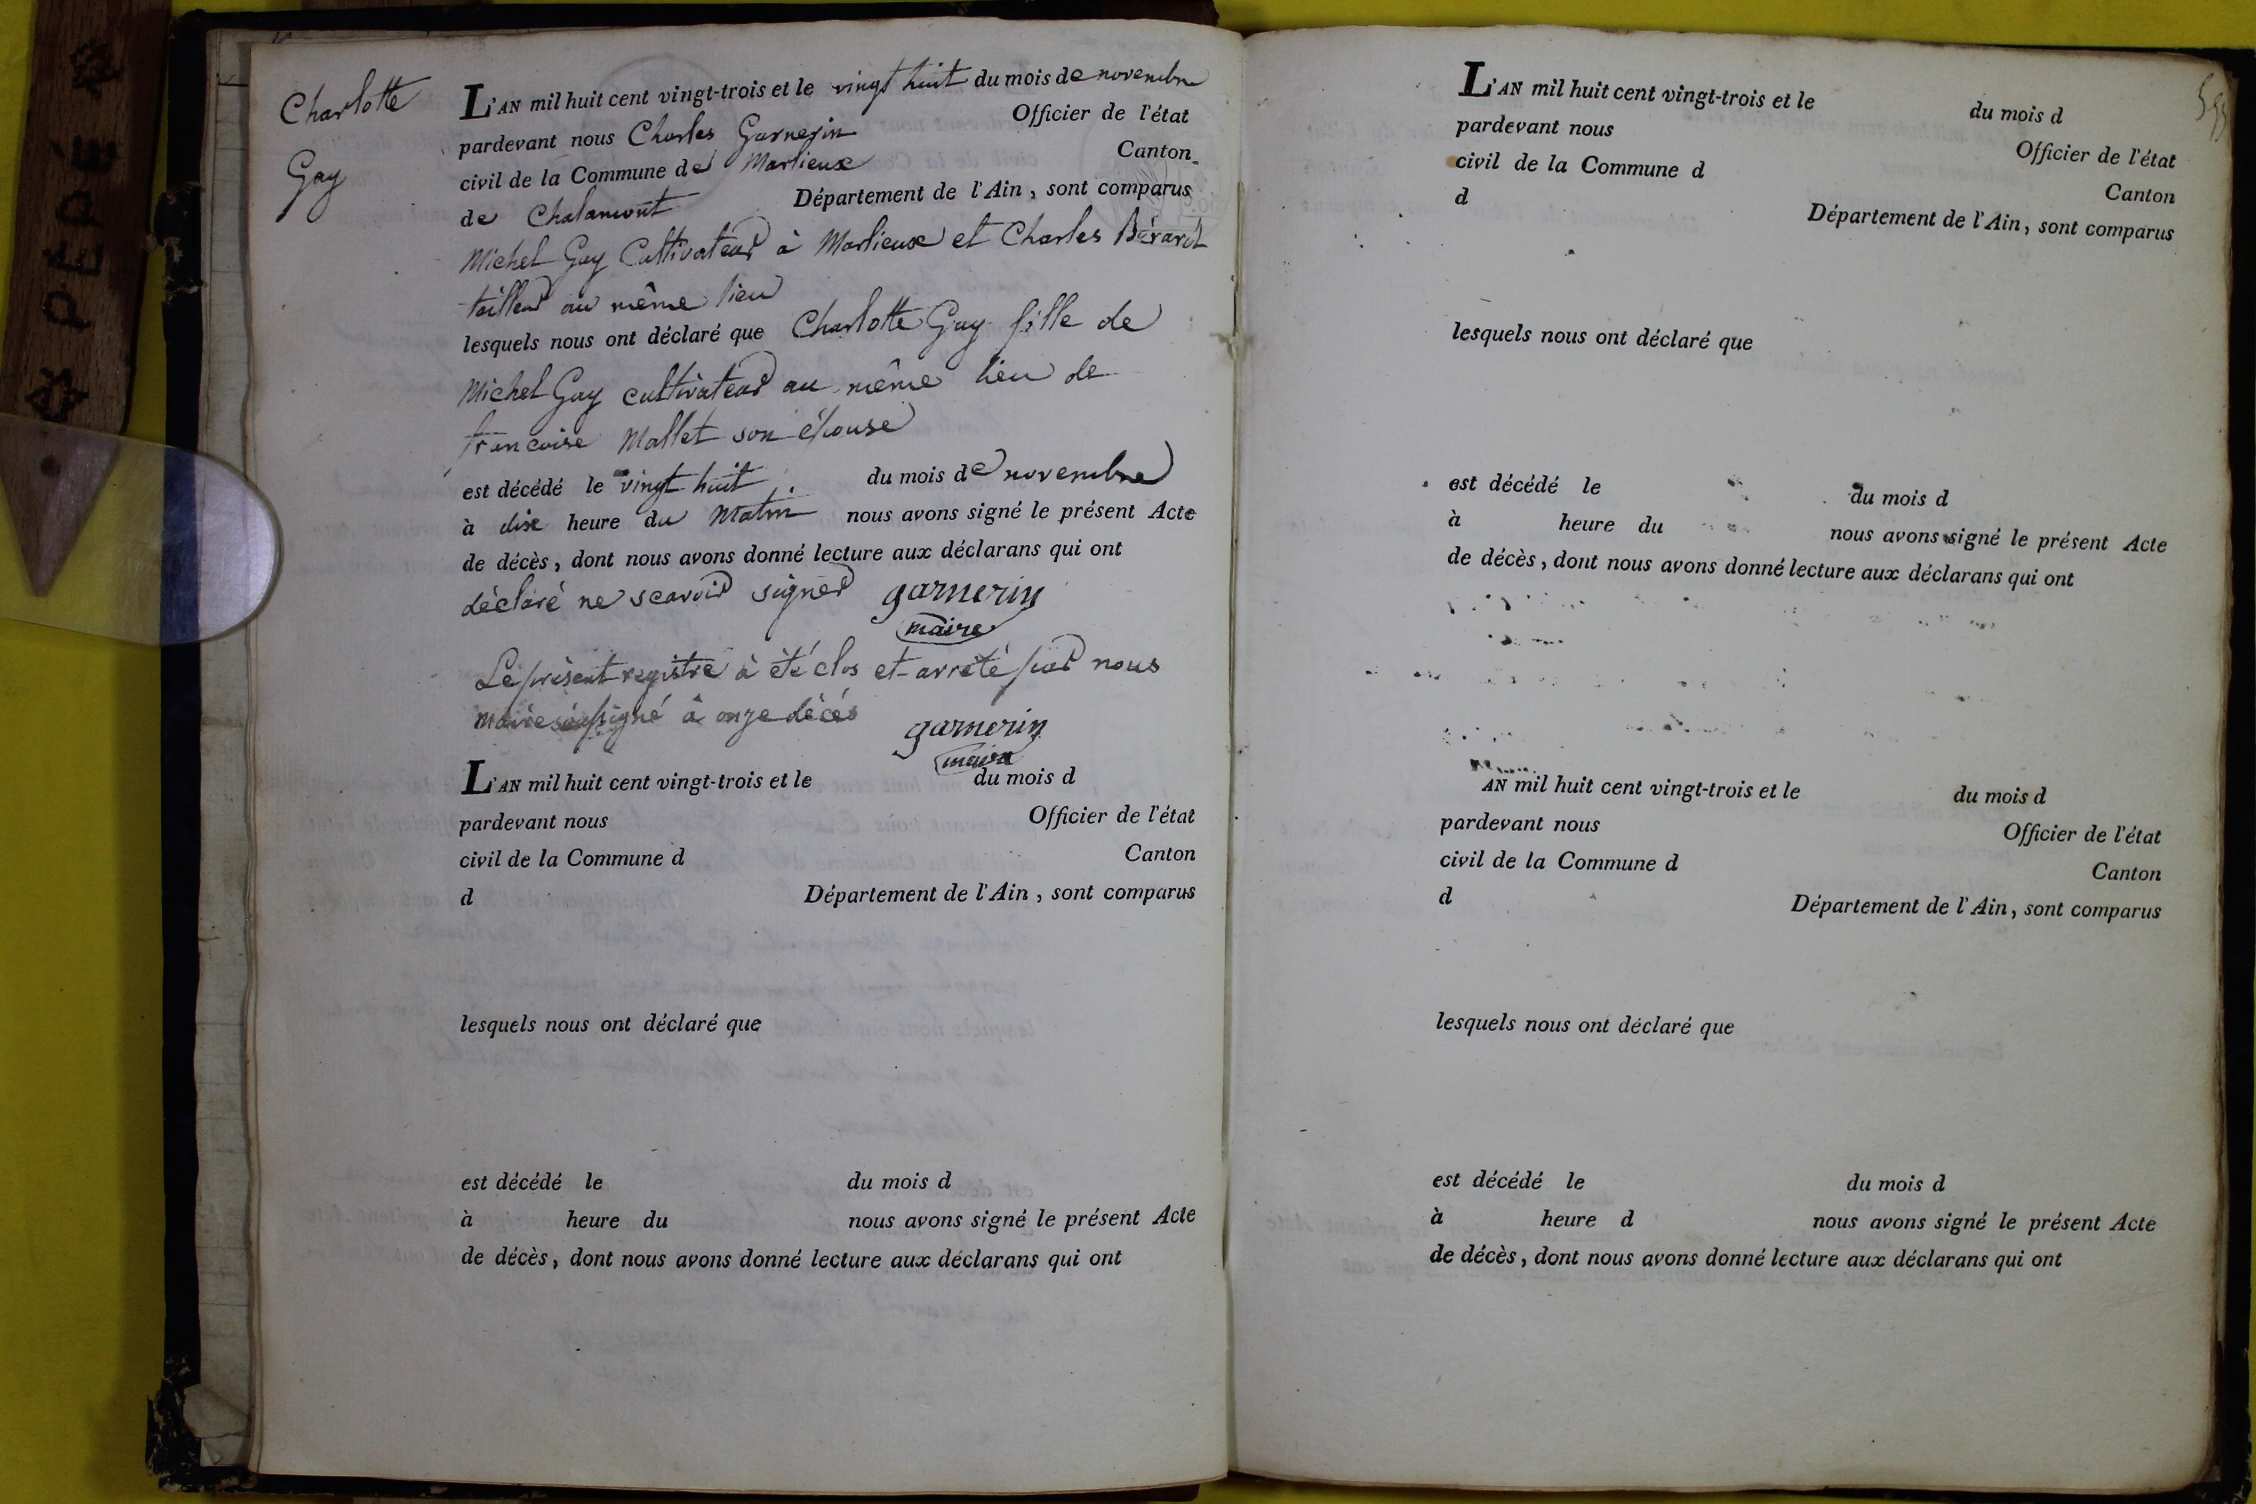 PEDÈ
Charlotte
Gay
L'AN mil huit cent vingt-trois et le vingt huit du mois de novembre
pardevant nous Charles Garnerin Officier de l'état
civil de la Commune de Marlieux Canton
de Chalamont Département de l'Ain, sont comparus
Michel Gay Cultivateur à Marlieux et Charles Bérard
tailleur au même lieu
lesquels nous ont déclaré que Charlotte Gay fille de
Michel Gay cultivateur au même lieu de
francoise Mallet son épouse
est décédé le vingt huit du mois de novembre
à dix heure du Matin nous avons signé le présent Acte
de décès, dont nous avons donné lecture aux déclarans qui ont
déclaré ne scavoir signer garnerin
maire
Le présent registre à été clos et arrêté par nous
maire soussigné à onze décés garnerin
maire
L'AN mil huit cent vingt-trois et le du mois d
pardevant nous Officier de l'état
civil de la Commune d Canton
d Département de l'Ain, sont comparus
lesquels nous ont déclaré que
est décédé le du mois d
à heure du nous avons signé le présent Acte
de décès, dont nous avons donné lecture aux déclarans qui ont
L'AN mil huit cent vingt-trois et le du mois d
pardevant nous Officier de l'état
civil de la Commune d Canton
d Département de l'Ain, sont comparus
lesquels nous ont déclaré que
est décédé le du mois d
à heure du nous avons signé le présent Acte
de décès, dont nous avons donné lecture aux déclarans qui ont
AN mil huit cent vingt-trois et le du mois d
pardevant nous Officier de l'état
civil de la Commune d Canton
d Département de l'Ain, sont comparus
lesquels nous ont déclaré que
est décédé le du mois d
à heure d nous avons signé le présent Acte
de décès, dont nous avons donné lecture aux déclarans qui ont